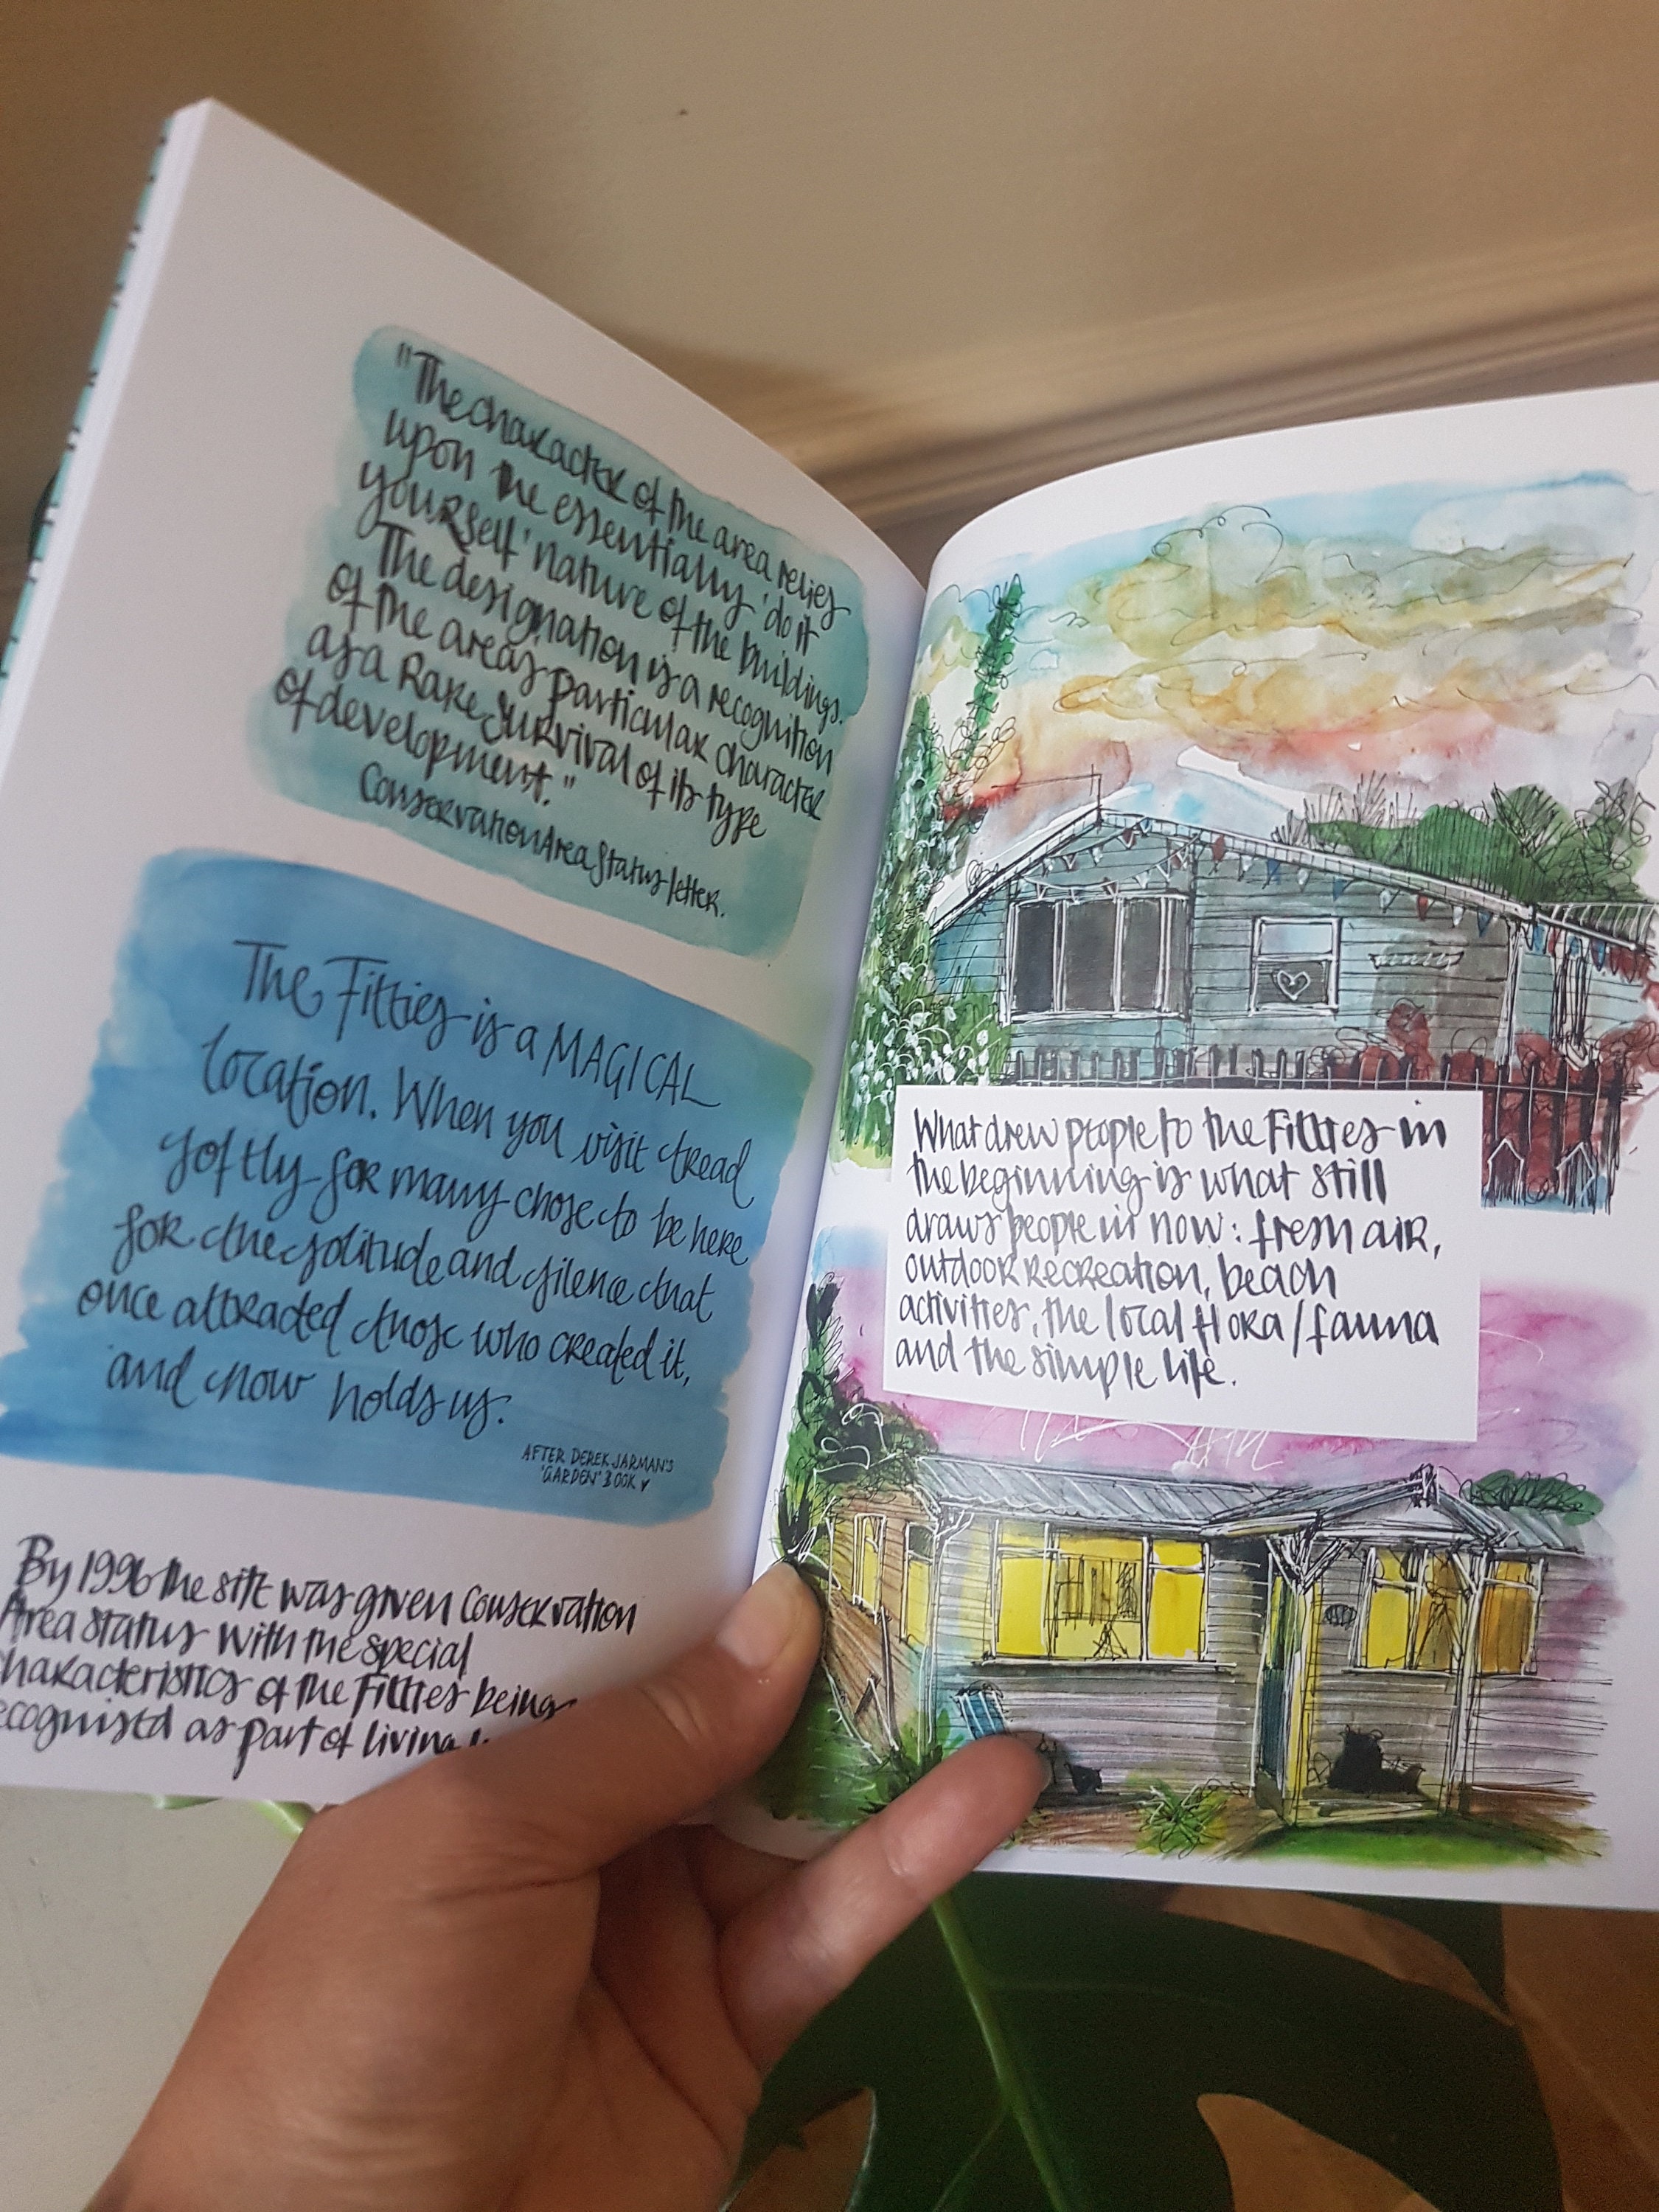 "The character of the area relies
upon the essentially 'do it
yourself' nature of the buildings.
The designation is a recognition
of the areas particular character
as a Rare Survival of its type
of development."
Conservation Area Status letter.
The Fitties is a MAGICAL
location. When you visit tread
softly for many chose to be here
for the solitude and silence that
once attracted those who created it,
and now holds us.
AFTER DEREK JARMAN'S
'GARDEN' BOOK
By 1996 the site was given Conservation
Area status with the special
characteristics of the Fitties being
recognised as part of living
What drew people to the Fitties in
the beginning is what still
draws people in now: fresh air,
outdoor recreation, beach
activities, the local flora/fauna
and the simple life.